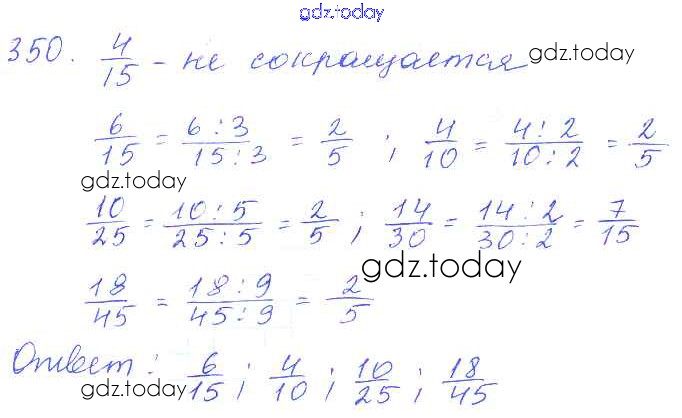 gdz.today
350. 4/15 - не сокращается gdz.today
6/15 = 6:3/15:3 = 2/5 ; 4/10 = 4:2/10:2 = 2/5
gdz.today
10/25 = 10:5/25:5 = 2/5 ; 14/30 = 14:2/30:2 = 7/15
gdz.today
18/45 = 18:9/45:9 = 2/5
Ответ: 6/15 ; 4/10 ; 10/25 ; 18/45
gdz.today gdz.today